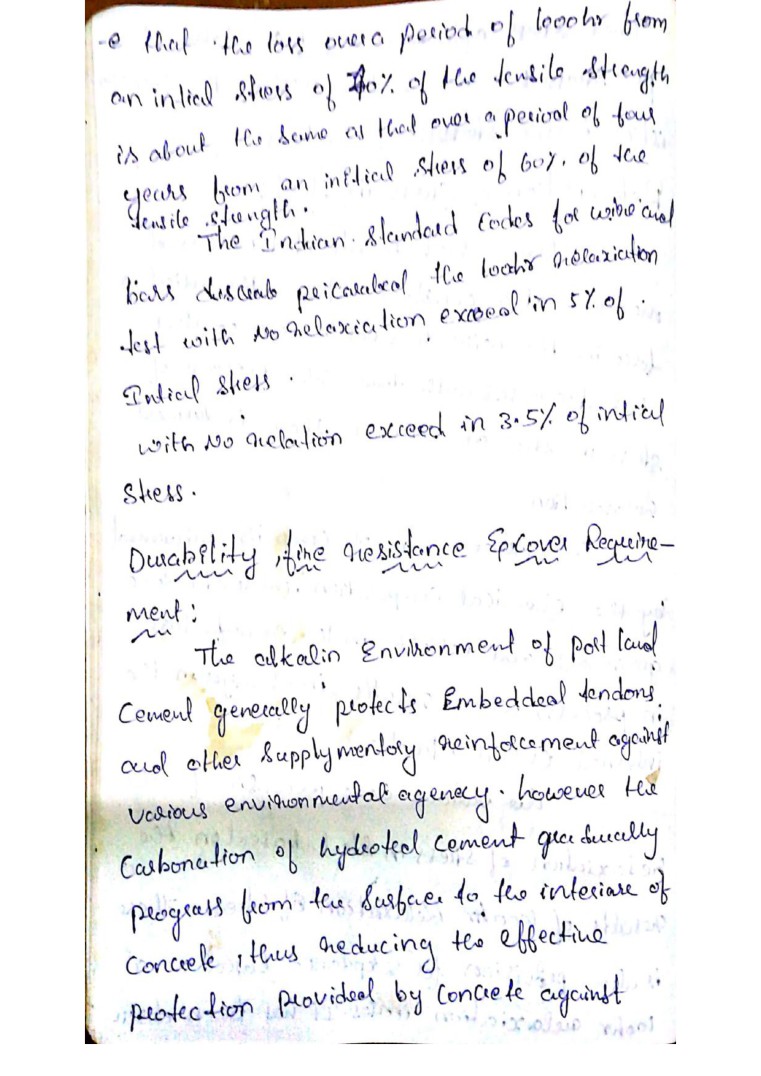 that the loss over a period of 1000hr from
an intial stress of 70% of the tensile strength
is about the same as that over a period of four
years from an initical stress of 60%. of the
tensile strength.
The Indian Standard Codes for wire and
bars the 1000hr relaxication
test with No relaxication exceed in 5% of
Intical stress.
with No relation exceed in 3.5% of intial
stress.
Durability, fire resistance & cover Require-
ment:
The alkalin Environment of Port land
Cement generally protects Embedded tendons
and other Supplymentory reinforcement against
various environmental agenecy. however the
Carbonation of hydroted cement gradually
prograss from the surface to the interiare of
Concrete, thus reducing the effective
protection provided by concrete against